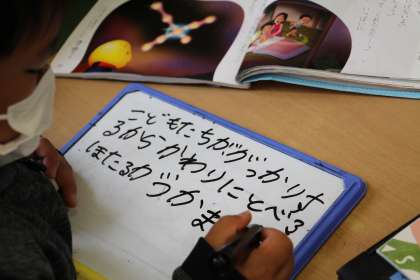 こどもたちががっかりす
るからかわりにとべる
ほたるがづかま